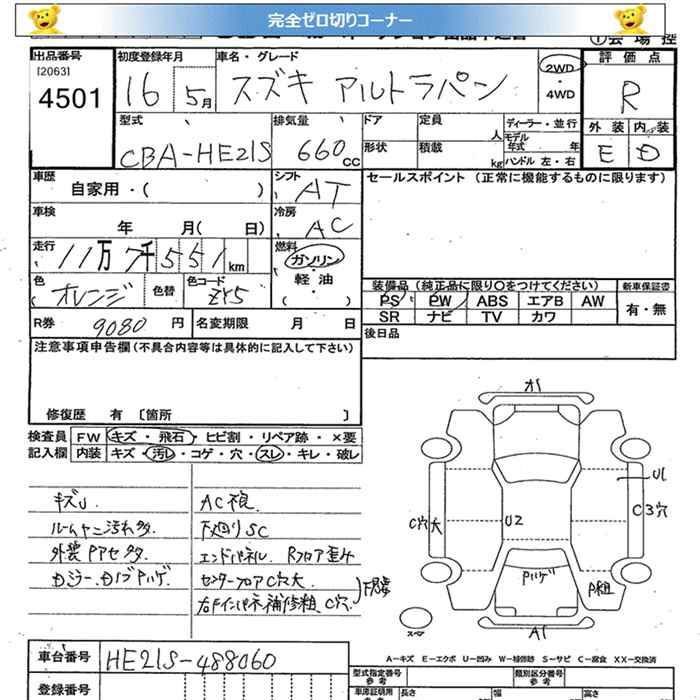 完全ゼロ切りコーナー
出品番号
[2063]
4501
初度登録年月
16 5月
車名・グレード
スズキ アルトラパン
2WD
4WD
評価点
R
外装 内装
E D
型式
CBA-HE21S
排気量
660cc
ドア
定員
人
形状
積載
kg
ディーラー・並行
モデル
年式 年
ハンドル 左・右
車歴
自家用・( )
シフト
AT
セールスポイント (正常に機能するものに限ります)
車検
年 月( 日)
冷房
AC
走行
11万7千551km
燃料
ガソリン
軽油
色
オレンジ
色替
色コード
ZY5
装備品 (純正品に限り○をつけてください)
新車保証書
PS PW ABS エアB AW
SR ナビ TV カワ
有・無
R券
9080円
名変期限 月 日
後日品
注意事項申告欄 (不具合内容等は具体的に記入して下さい)
修復歴 有 〔箇所 〕
検査員
記入欄
FW キズ・飛石・ヒビ割・リペア跡・×要
内装 キズ・汚レ・コゲ・穴・スレ・キレ・破レ
キズU
ルーム ヤニ 汚れ多
外装Pアセタ多
AC不良
下廻りSC
エンドパネル Rフロア歪み
センターフロアC穴大
C穴
オハ
U1
C3穴
C穴大
U2
Pハゲ
P粗
スペア
A1
A-キズ E-エクボ U-凹み W-補修跡 S-サビ C-腐食 XX-交換済
車台番号
HE21S-488060
登録番号
型式指定番号
参考
類別区分番号
参考
車庫証明用
長さ
幅
高さ